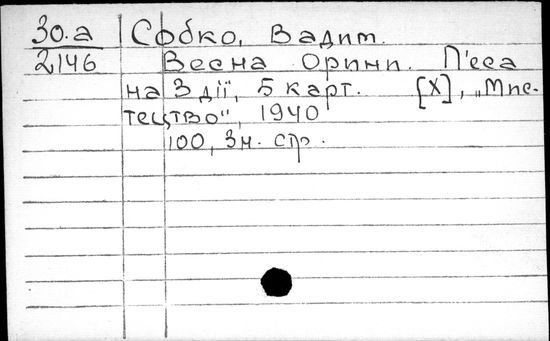 30.а Собко, Вадим.
2146 Весна Орини. П'єса
на 3 дії, 5 карт. [Х], „Мис-
тецтво", 1940
100, 3н. стр.